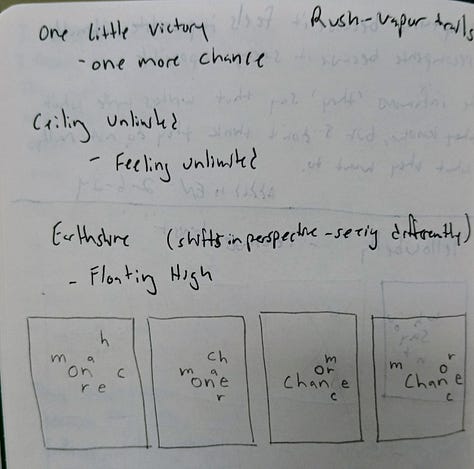 One little victory Rush - Vapor trails
- one more chance
Ceiling unlimited
- Feeling unlimited
Earthshine (shifts in perspective - seeing differently)
- Floating High
h
m a
on c
r e
ch
m a
one
r
m
or
chan e
c
r
m o
chan e
c